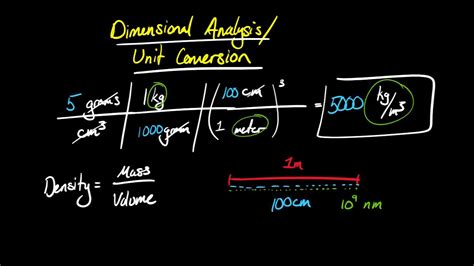 Dimensional Analysis/
Unit Conversion
5 grams | 1 kg | (100 cm)³
cm³ | 1000 gram | (1 meter) = 5000 kg/m³
Density = Mass
Volume
1m
100cm 10⁹ nm